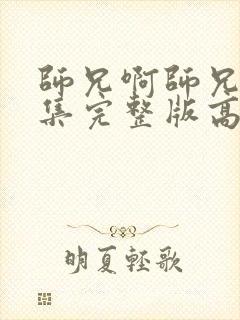 師兄啊師兄
集完整版高
明夏輕歌